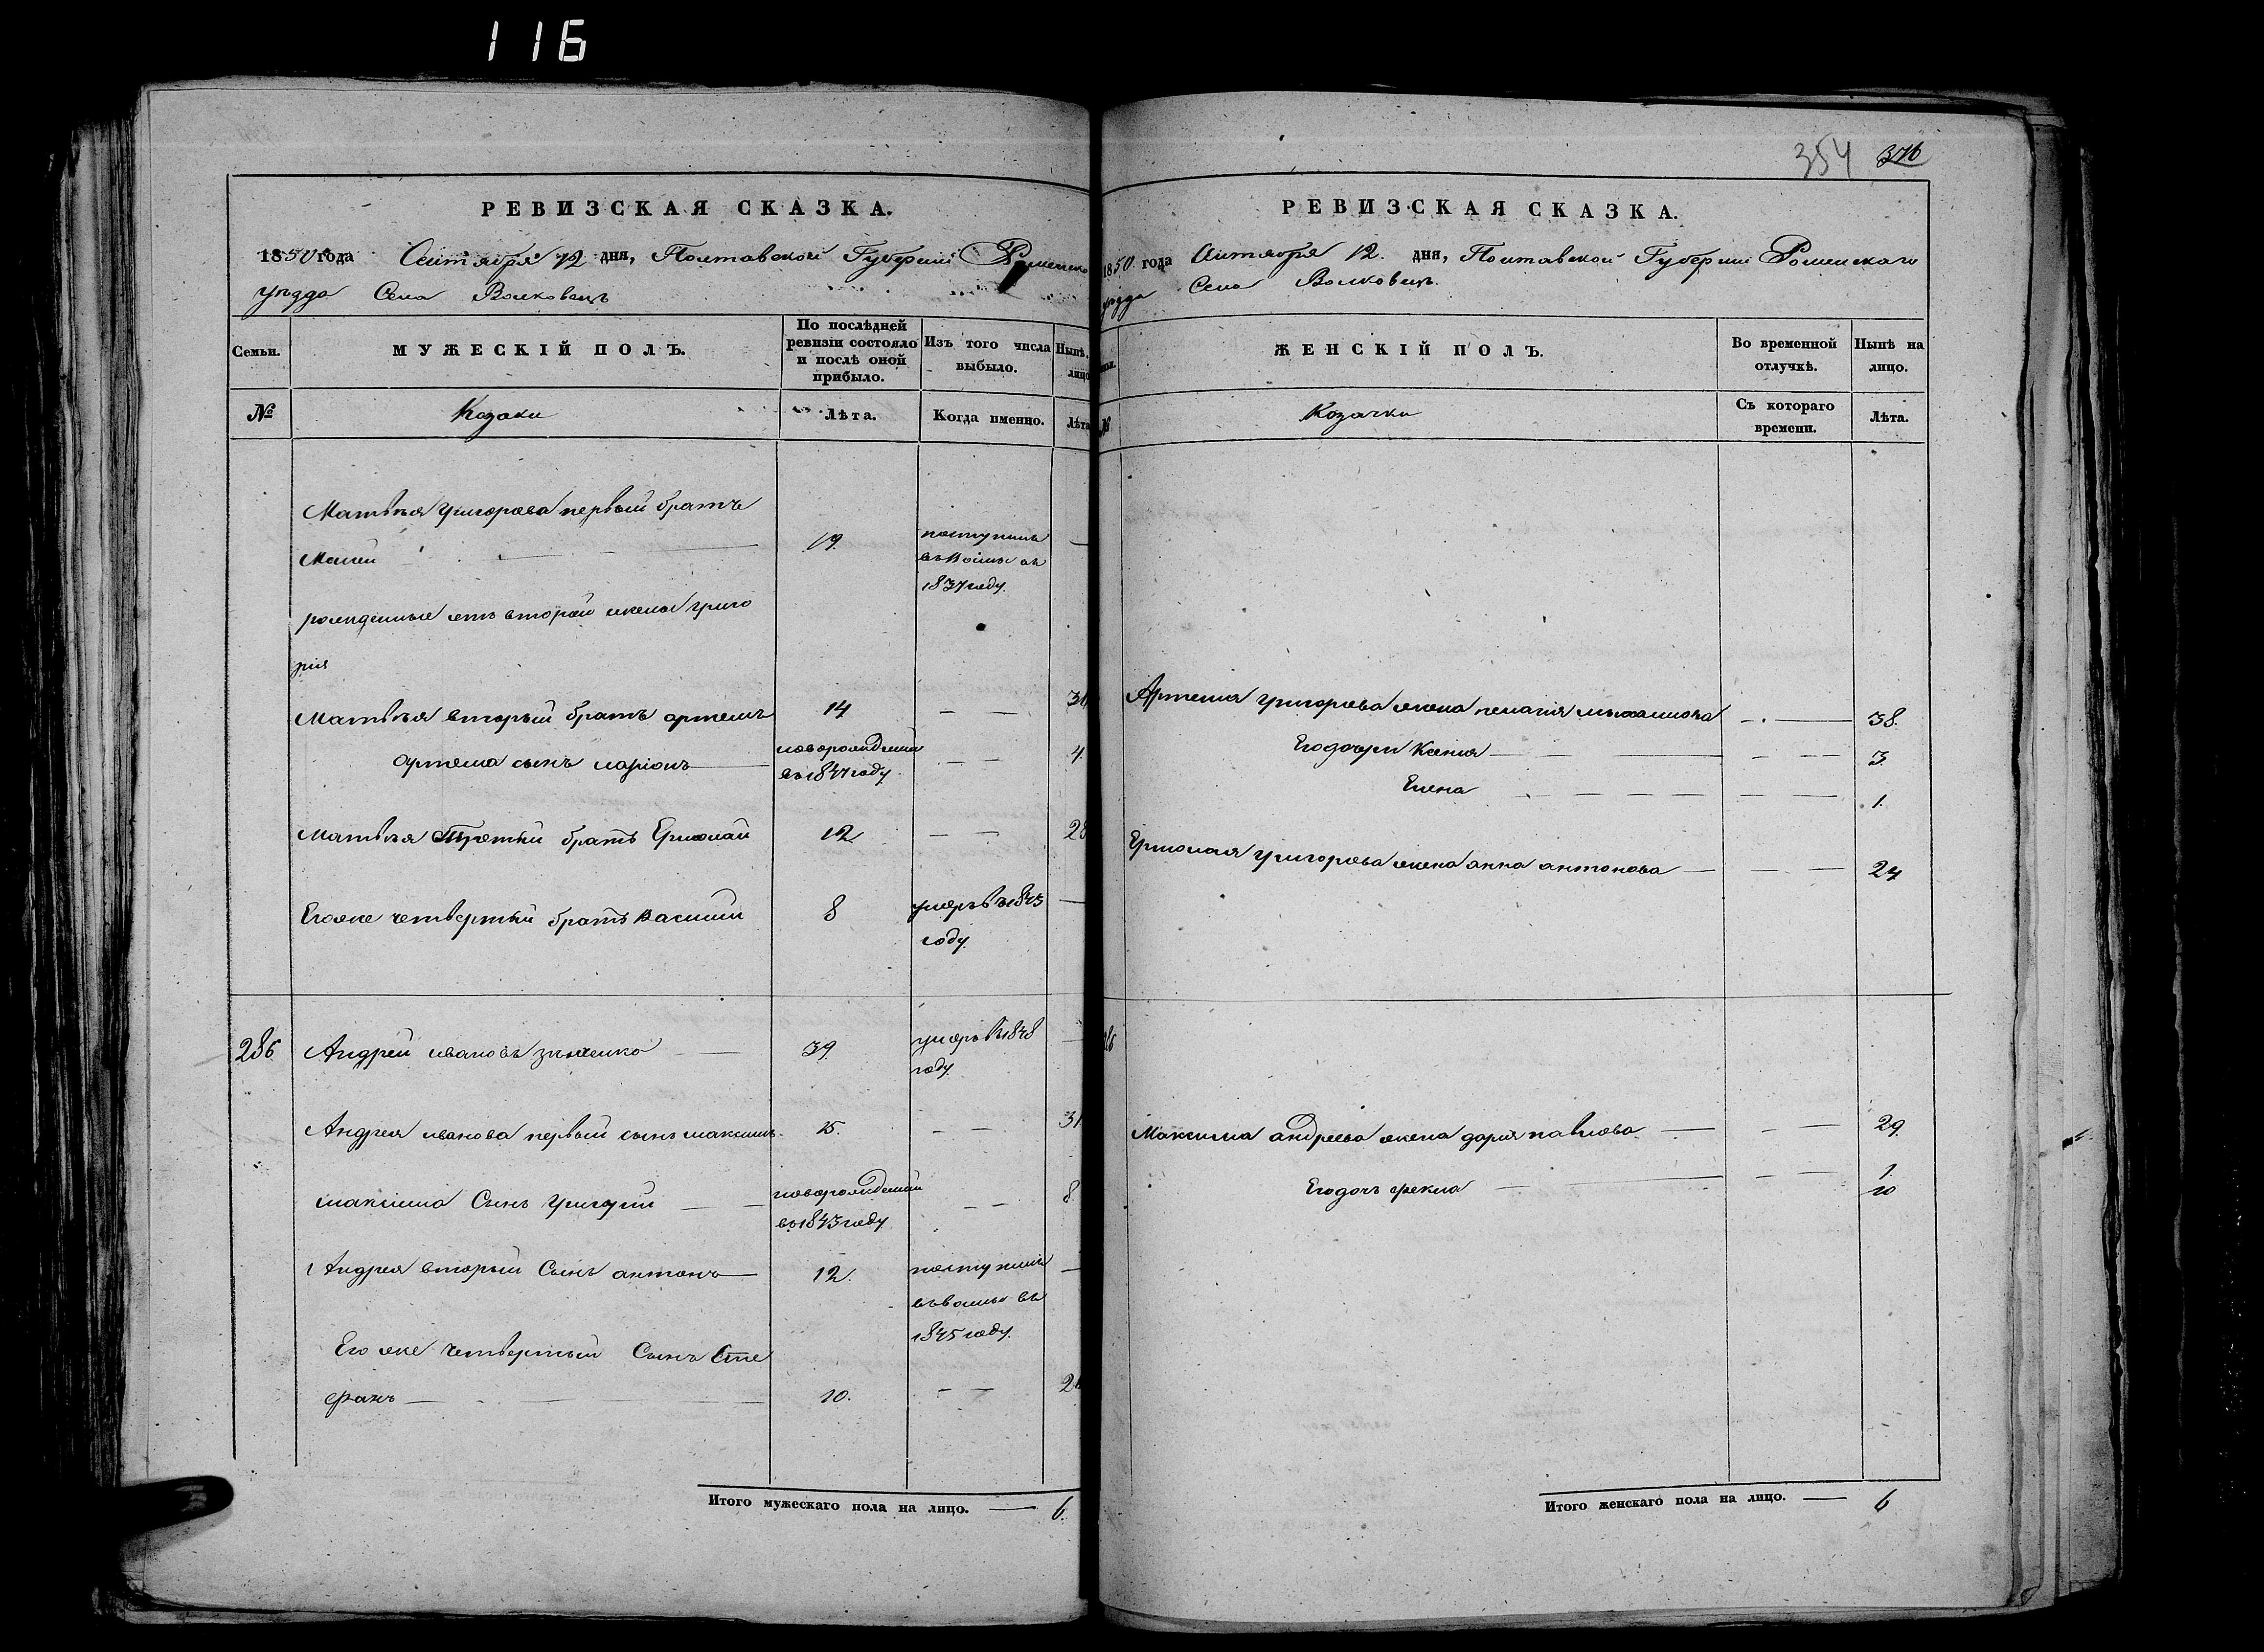 116
РЕВИЗСКАЯ СКАЗКА.
1850 года Сентября 12 дня, Полтавской Губерніи Роменско
уѣзда Села Волковецъ
Семьи.
МУЖЕСКІЙ ПОЛЪ.
По послѣдней ревизіи состояло и послѣ оной прибыло.
Изъ того числа выбыло.
Нынѣ лицо
№
Козаки
Лѣта.
Когда именно.
Лѣта
Матвѣя Григорьева первый братъ
19.
поступилъ
въ 1837 году.
рожденные отъ второй жены Григо
рія
Матвѣя вторый братъ Артемъ 14 — —
Артема сынъ Ларіонъ новорожденный въ 1847 году — — 4
Матвѣя третій братъ Ермолай 12 — — 28
Егоже четвертый братъ Василій 8 умеръ въ 1843 году —
286 Андрей Ивановъ 39. умеръ въ 1848 году —
Андрея Иванова первый сынъ Максимъ 15. — — 31
Максима Сынъ Григорій новорожденный въ 1843 году — — 8
Андрея вторый Сынъ Антонъ 12. поступилъ
1845 году.
Его же четвертый Сынъ Сте
фанъ 10. — —
Итого мужескаго пола на лицо. — 6.
354 376
РЕВИЗСКАЯ СКАЗКА.
1850 года Сентября 12. дня, Полтавской Губерніи Роменскаго
уѣзда Села Волковецъ.
№
ЖЕНСКІЙ ПОЛЪ.
Во временной отлучкѣ.
Нынѣ на лицо.
Козачки
Съ котораго времени.
Лѣта.
Артема Григорьева жена Пелагія — 38.
Его дочери Ксенія — — — 3
Елена — — 1.
Ермолая Григорьева жена Анна Антонова — — — 24
Максима Андреева жена Дарія Павлова — — — 29.
Его дочь Фекла — — — 1/10
Итого женскаго пола на лицо. — 6